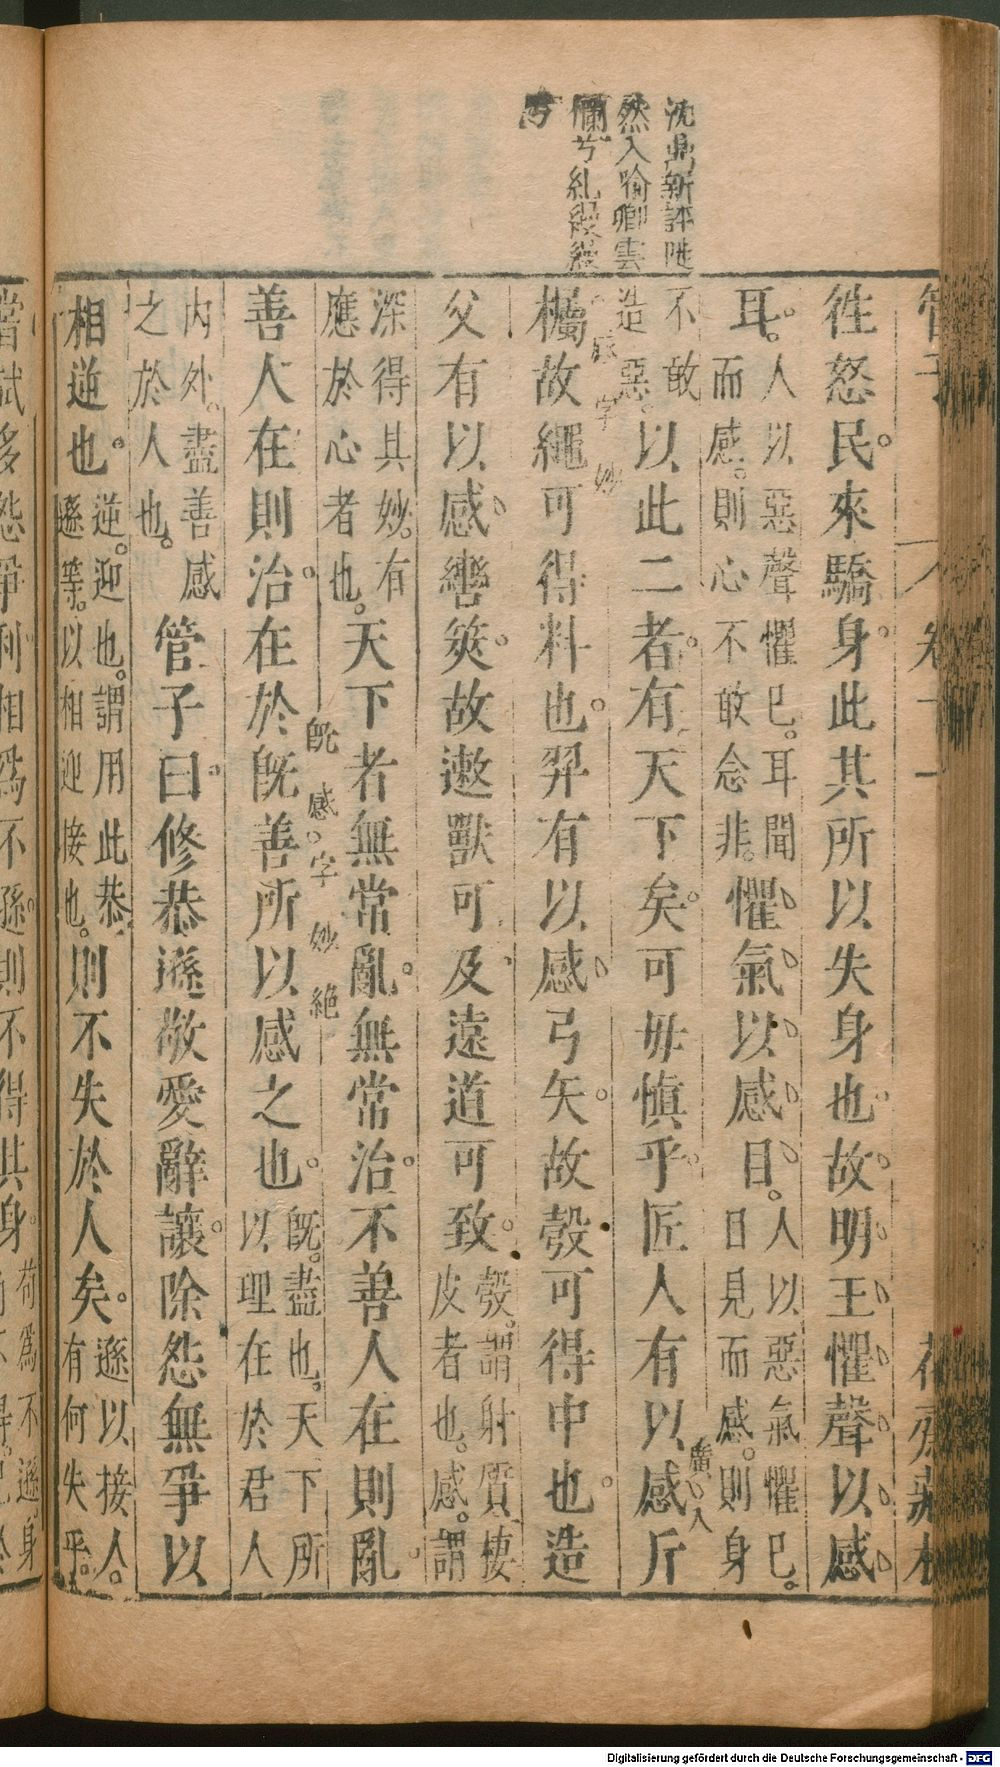 沈鼎新評陡
然入喻卿雲
爛兮糺縵縵
兮
管子 卷十一 花齋藏板
徃怒民來驕身此其所以失身也故明王懼聲以感
耳人以惡聲懼巳耳聞而感則心不敢念非懼氣以感目人以惡氣懼巳目見而感則身
不敢造惡以此二者有天下矣可毋慎乎匠人有以感斤
欘故繩可得料也羿有以感弓矢故彀可得中也造
父有以感轡筴故遬獸可及遠道可致彀謂射質棲皮者也感謂
深得其妙有應於心者也天下者無常亂無常治不善人在則亂
善人在則治在於旣善所以感之也旣盡也天下所以理在於君人
內外盡善感之於人也管子曰修恭遜敬愛辭讓除怨無爭以
相逆也逆迎也謂用此恭遜等以相迎接也則不失於人矣遜以接人有何失乎
字妙
廣入
旣感字妙絶
嘗試多怨爭利相爲不孫則不得其身苟爲不遜身
Digitalisierung gefördert durch die Deutsche Forschungsgemeinschaft - DFG